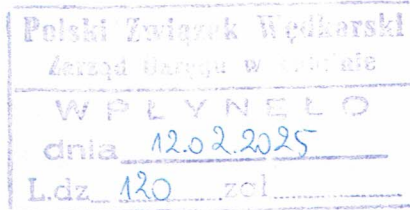 Polski Związek Wędkarski
Zarząd Okręgu w
WPŁYNĘŁO
dnia 12.02.2025
L.dz. 120 zał.